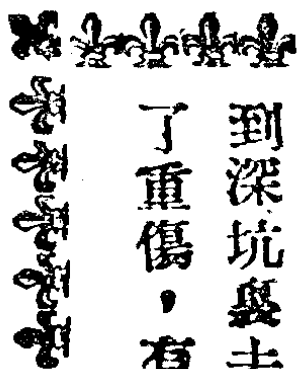 到深坑裏去
了重傷，有